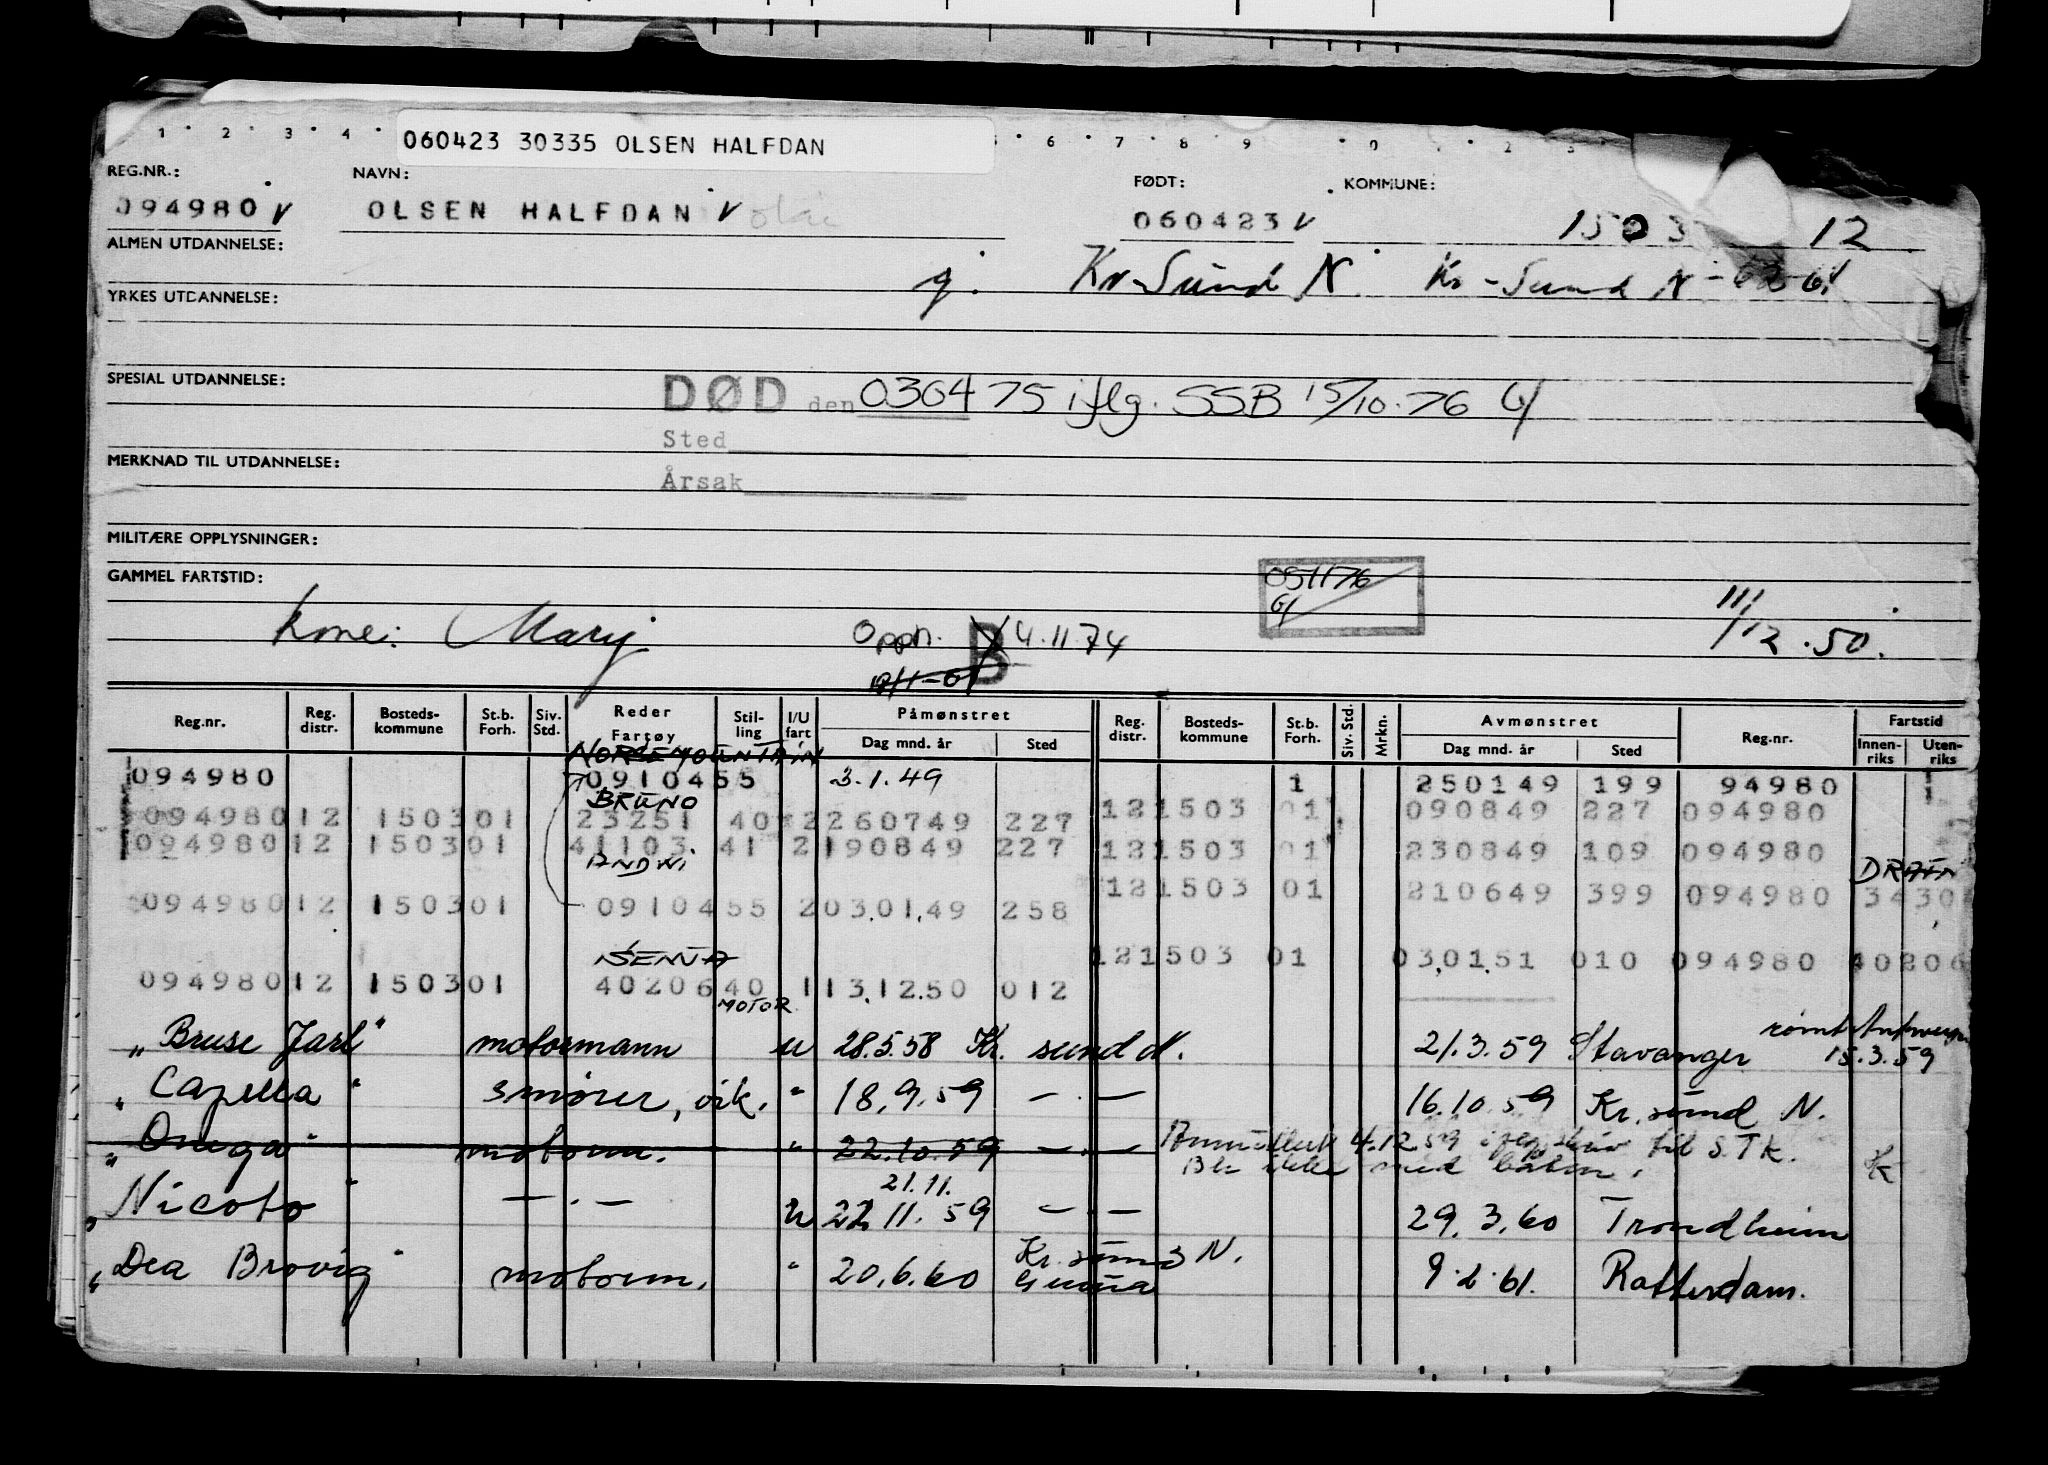 1 2 3 4 5 6 7 8 9 0 1 2 3
060423 30335 OLSEN HALFDAN
REG.NR.: NAVN: FØDT: KOMMUNE:
094980 V OLSEN HALFDAN V 060423 V 1503 12
ALMEN UTDANNELSE:
g. Kr-Sund N. Kr-Sund N - 62
YRKES UTDANNELSE:
SPESIAL UTDANNELSE:
DØD den 030475 iflg. SSB 15/10.76
Sted
MERKNAD TIL UTDANNELSE:
Årsak
MILITÆRE OPPLYSNINGER:
GAMMEL FARTSTID:
051176
kone: Mary Opph. B 4.11.74 1/12.50.
Reg.nr. Reg. distr. Bosteds-kommune St.b. Forh. Siv. Std. Reder Fartøy Stil-ling I/U fart Påmønstret Dag mnd. år Sted Reg. distr. Bosteds-kommune St.b. Forh. Siv. Std. Mrkn. Avmønstret Dag mnd. år Sted Reg.nr. Fartstid Innen-riks Uten-riks
NORSE MOUNTAIN
094980 0910455 3.1.49 1 250149 199 94980 1
BRUNO
094980 12 1503 01 23251 40 2 260749 227 12 1503 01 090849 227 094980
094980 12 1503 01 41103 41 2 190849 227 12 1503 01 230849 109 094980
ANDWI
094980 12 1503 01 0910455 2 03.01.49 258 12 1503 01 210649 399 094980 3430
SENJA
094980 12 1503 01 40206 40 1 13.12.50 012 12 1503 01 03.01.51 010 094980 40206
MOTOR
"Bruse Jarl" motormann u 28.5.58 Kr. sund N. 21.3.59 Stavanger rømt Antwerpen 15.3.59
"Capella" smører, vik. " 18.9.59 — . — 16.10.59 Kr. sund N.
"Omega" motorm. " 22.10.59 — . — Annullert 4.12.59 iflg. skriv til STK.
Ble ikke med båten.
21.11.
"Nicoto" — . — u 22.11.59 — . — 29.3.60 Trondheim
"Dea Brøvig" motorm. " 20.6.60 Kr. sund N. 9.2.61. Rotterdam.